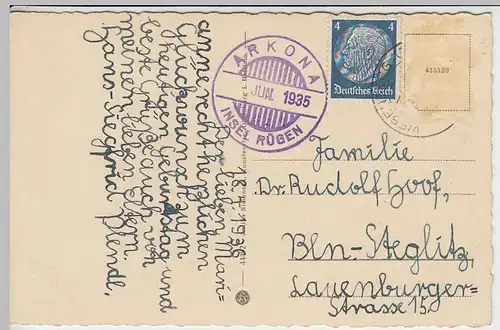 Der lieben Mari-
anne recht herzlichen
Glückwunsch zum
heutigen Geburtstag und
beste Grüße auch von
meinen lieben Eltern.
Hans-Siegfried
ARKONA
JUNI 1935
INSEL RÜGEN
4 4
Deutsches Reich
415159
Familie
Dr. Rudolf Hoof,
Bln-Steglitz,
Lauenburger-
Strasse 15.